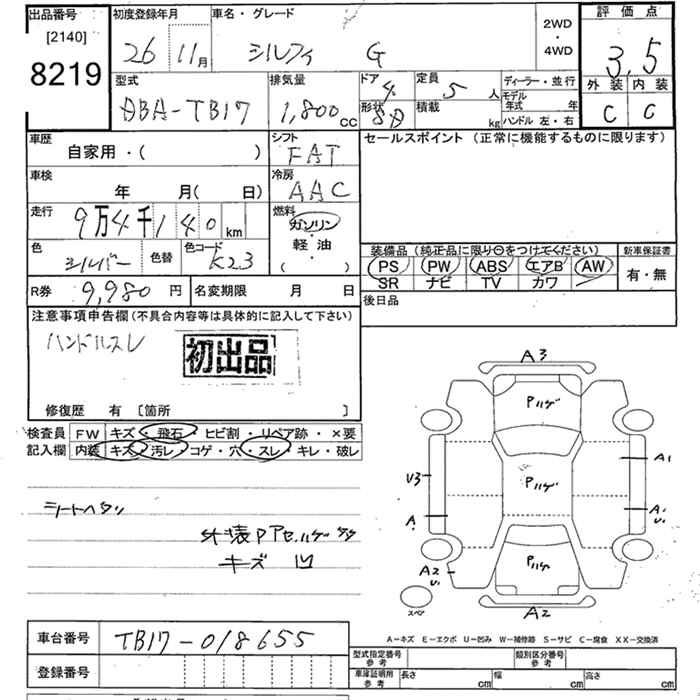 出品番号
[2140]
8219
初度登録年月
26 11月
車名・グレード
シルフィ G
2WD
・
4WD
評価点
3.5
外装 内装
C C
型式
DBA-TB17
排気量
1,800cc
ドア 4
形状 SD
定員 5人
積載 kg
ディーラー・並行
モデル年式 年
ハンドル 左・右
車歴
自家用・( )
シフト
FAT
セールスポイント (正常に機能するものに限ります)
車検
年 月( 日)
冷房
AAC
走行
9万4千140km
燃料
ガソリン
・
軽油
( )
色
シルバー
色替
色コード
K23
装備品 (純正品に限り○をつけてください)
PS PW ABS エアB AW
SR ナビ TV カワ
新車保証書
有・無
R券 9,980円
名変期限 月 日
後日品
注意事項申告欄(不具合内容等は具体的に記入して下さい)
ハンドルスレ
初出品
修復歴 有 [箇所 ]
検査員
記入欄
FW キズ・飛石・ヒビ割・リペア跡・×要
内装 キズ・汚レ・コゲ・穴・スレ・キレ・破レ
シートヘタリ
キズ 凹
A3
Pハゲ
U3
A
Pハゲ
A1
A1
U1
Pハゲ
A2
U1
スペア
A2
A－キズ E－エクボ U－凹み W－補修跡 S－サビ C－腐食 XX－交換済
車台番号
TB17-018655
登録番号
型式指定番号
参考
類別区分番号
参考
車庫証明用
参考
長さ cm
幅 cm
高さ cm